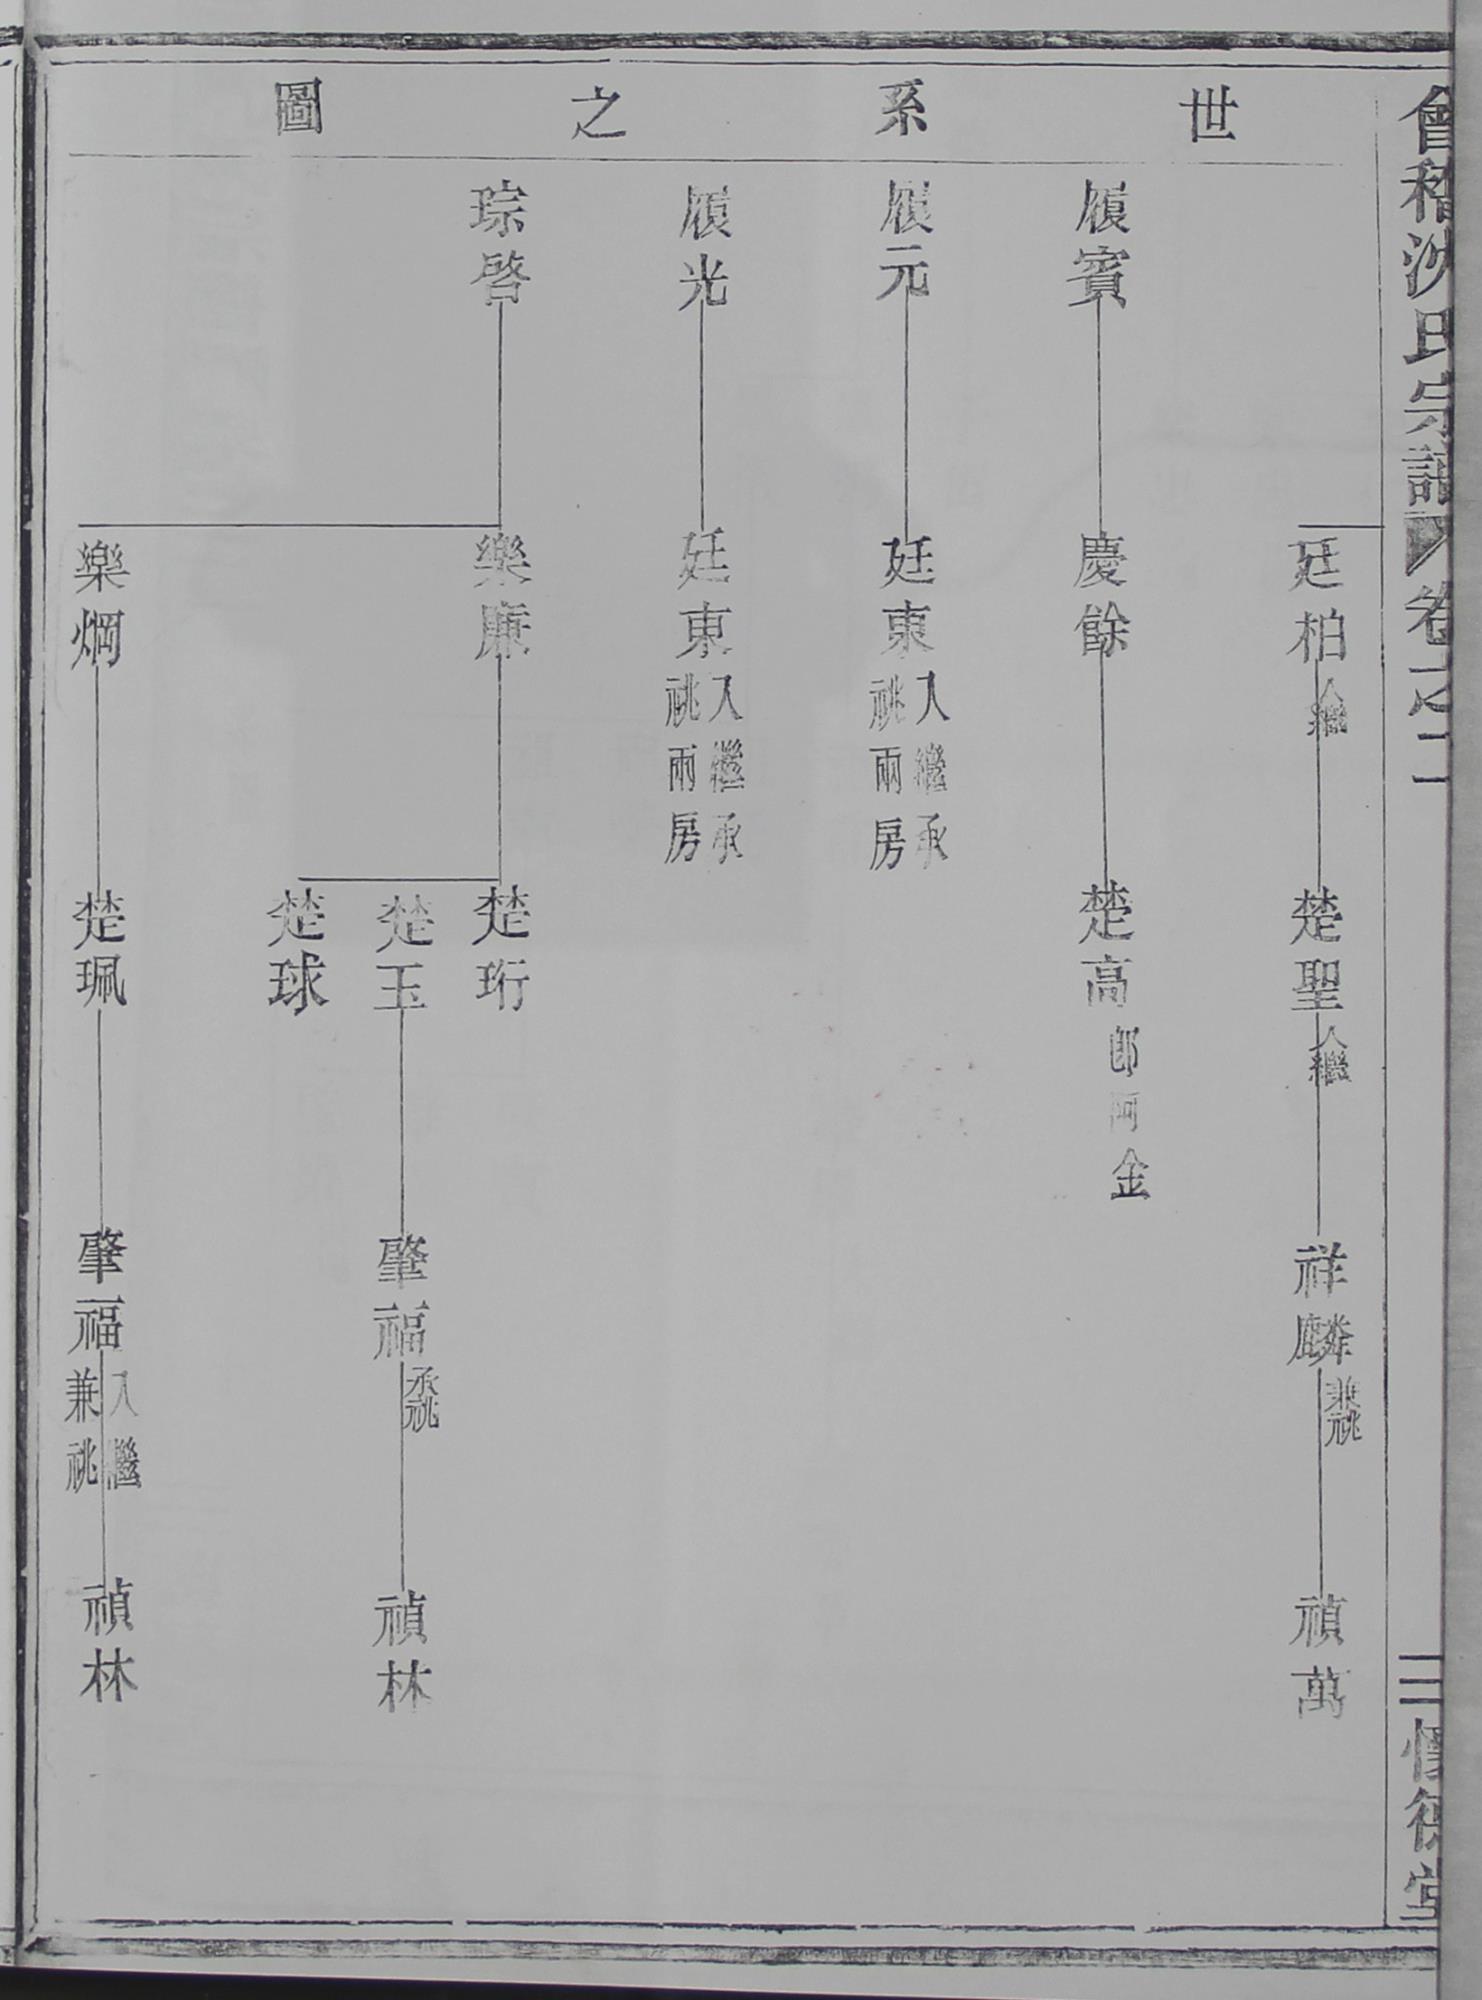 會稽沈氏宗譜 卷之二
世系之圖
廷柏 入繼
楚聖 入繼
祥麟 兼祧
禎萬
履賓
慶餘
楚高 郎阿金
履元
廷東 入繼承祧兩房
履光
廷東 入繼承祧兩房
琮啓
樂廉
楚珩
楚玉
肇福 承祧
禎林
楚球
樂烱
楚珮
肇福 入繼兼祧
禎林
德堂